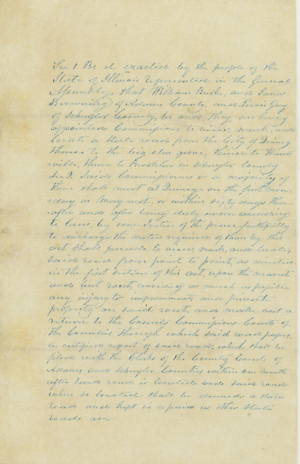 Sec 1. Be it enacted by the people of the
State of Illinois represented in the General
Assembly, that
Browning of Adams County, and
of Schuyler County, be and they are hereby
appointed Commissioners to view, mark, and
locate a State road from the City of Quincy
thence to
ville, thence to Brooklin in Schuyler County
Sec 2. Said Commissioners or a majority of
them shall meet at Quincy on the first mon
day in May next, or within sixty days there
after and after being duly sworn according
to law, by some justice of the peace faithfully
to discharge the duties required of them by this
act shall proceed to view, mark, and locate
said road from point to point, as
in the first section of this act, upon the nearest
and best route, avoiding as much as possible
any injury to improvements and private
property on said route, and make out a
return to the County Commissioners Courts of
the Counties through which said road passes,
a report of said road, which shall be
filed with the Clerks of the County Courts of
Adams and Schuyler Counties within one month
after said road is located and said road
when so located shall be a State
road and kept in repair as other State
roads are